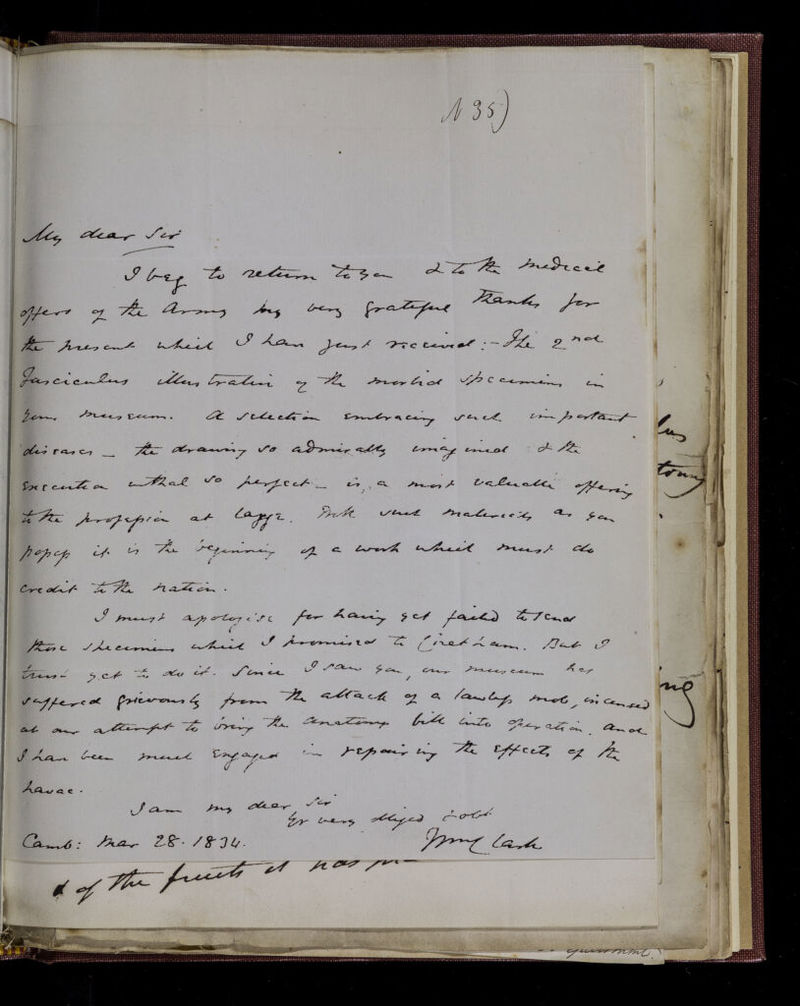 N 35)
My dear Sir
I beg to return to you & to the medical
officers of the Army my very grateful thanks for
the present which I have just received:- The 2nd
Fasciculus illustrative of the morbid specimens in
your museum. A selection embracing such important
diseases - the drawing so admirably imagined & the
execution withal so perfect - is, a most valuable offering
to the profession at large. With such materials as you
possess it is the beginning of a work which must do
credit to the nation.
I must apologise for having yet failed to send
those specimens which I promised to Chatham. But I
trust yet to do it. Since I saw you, our museum has
suffered grievously from the attack of a lawless mob, incensed
at our attempt to bring the anatomy bill into operation. and
I have been much engaged in repairing the effects of the
havac.
I am my dear Sir
Yr very obliged
Camb: Mar 28. 1834. Wm Clark
of the fruits it has